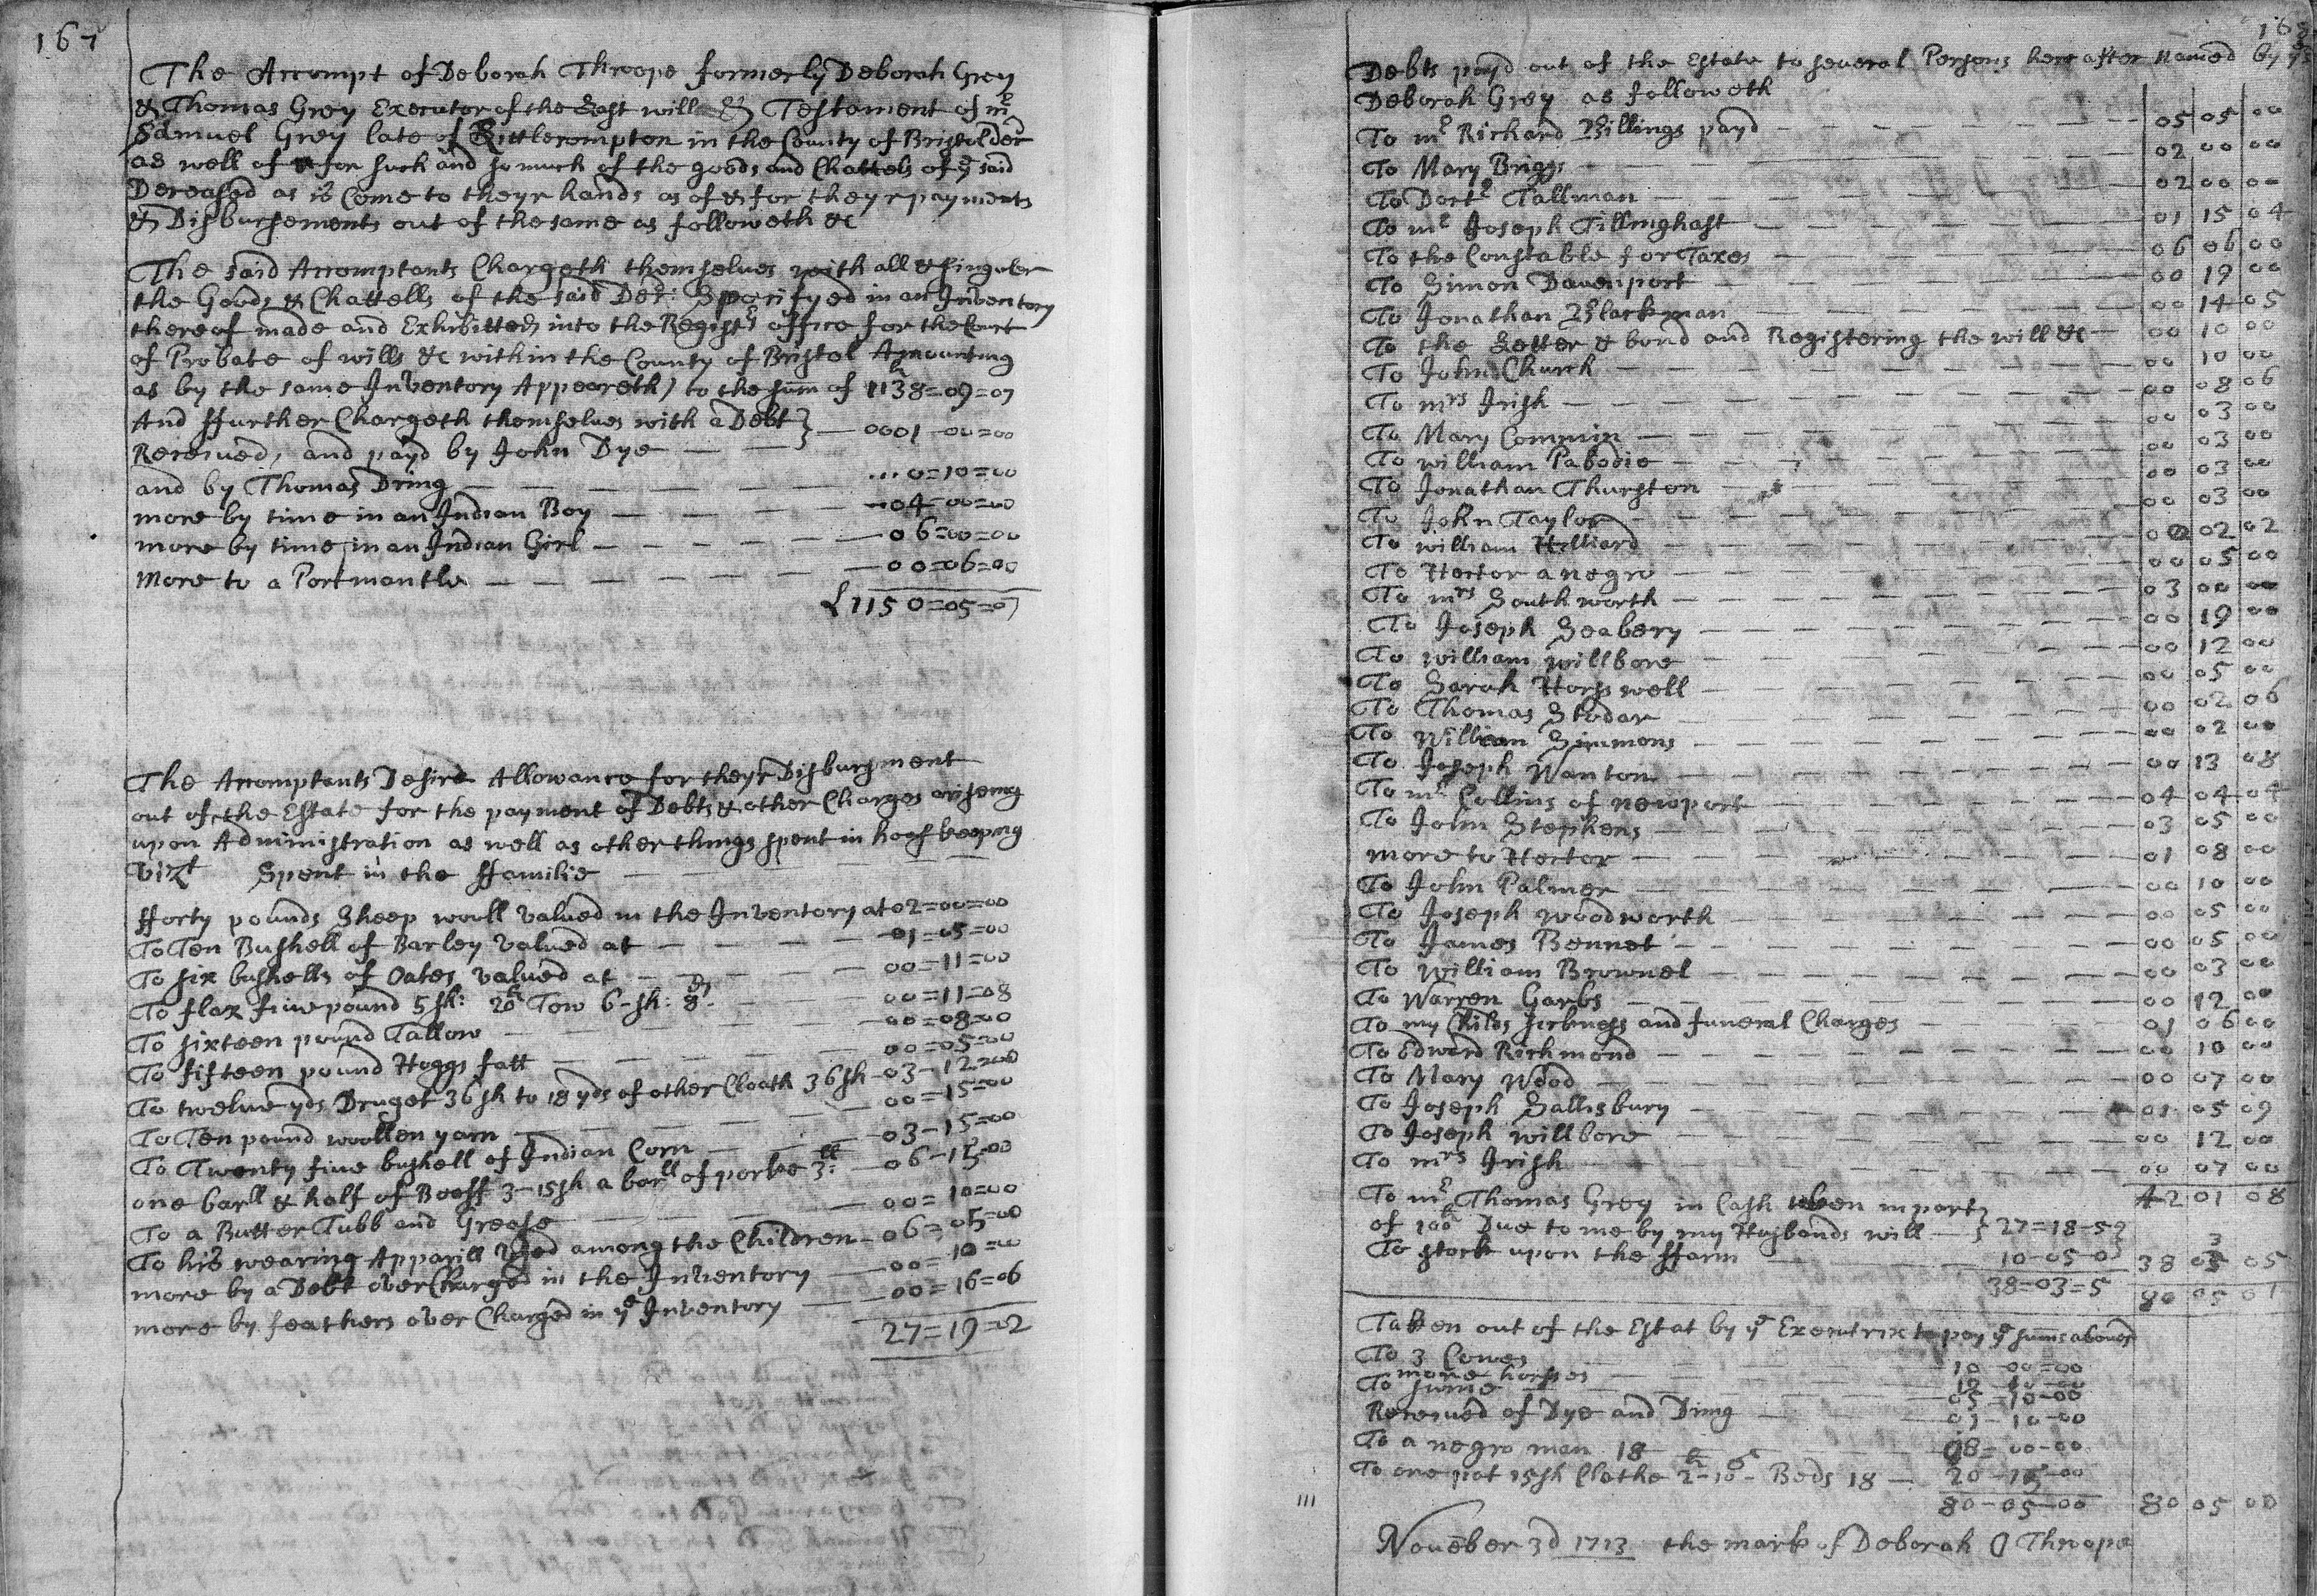 167
The Accompt of Deborah Throope formerly Deborah Grey
& Thomas Grey Executor of the Last will & Testament of mr
Samuel Grey late of Littlecompton in the County of Bristol decd
as well of & for such and so much of the goods and Chattels of ye said
Deceased as is Come to theyr hands as of & for theyr payments
& Disbursements out of the same as followeth &c
The said Accomptants Chargeth themselves with all & singuler
the Goods & Chattells of the said Dec: Specifyed in an Inventory
thereof made and Exhibitted into the Registr office for the Court
of Probate of wills &c within the County of Bristol Amounting
as by the same Inventory Appeareth) to the sum of 1138=09=07
And ffurther Chargeth themselves with a Debt
Received, and payd by John Dye — 0001-00=00
and by Thomas Dring — ...0=10=00
more by time in an Indian Boy — 04=00=00
more by time in an Indian Girl — 06=00=00
More to a Portmantle — 00=06=00
£1150=05=07
The Accomptants Desire Allowance for theyr Disbursment
out of the Estate for the payment of Debts & other Charges ariseing
upon Administration as well as other things spent in hous keeping
vizt Spent in the ffamilie
fforty pounds Sheep wooll valued in the Inventory at 02=00=00
To Ten Bushell of Barley valued at — 01=05=00
To six bushells of Oates valued at — 00-11=00
To flax five pound 5 sh: 20 Tow 6-sh: 8d — 00=11=08
To sixteen pound Tallow — 00=08=00
To fifteen pound Hoggs fatt — 00=05=00
To twelve yds Druget 36 sh to 18 yds of other Cloath 36 sh - 03-12=00
To Ten pound woollen yarn — 00=15=00
To Twenty five bushell of Indian Corn — 03-15=00
one barll & half of Beeff 3-15sh a barll of porke 3ll — 06-15=00
To a Butter Tubb and Grease — 00=10=00
To his wearing Apparill Used among the Children — 06=05=00
more by a Debt over Charged in the Inventory — 00=10=00
more by feathers over Charged in ye Inventory — 00=16=06
27=19=02
168
Debts payd out of the Estate to several Persons here after Named by ye sd
Deborah Grey as followeth
To mr Richard Billings payd — 05 05 00
To Mary Briggs — 02 00 00
To Doctr Tallman — 02 00 00
To mr Joseph Tillinghast — 01 15 04
To the Constable for Taxes — 06 06 00
To Simon Davenport — 00 19 00
To Jonathan Blackman — 00 14 05
To the Letter & bond and Registering the will &c — 00 10 00
To John Church — 00 10 00
To mrs Irish — 00 08 06
To Mary Commin — 00 03 00
To william Pabodie — 00 03 00
To Jonathan Thurston — 00 03 00
To John Taylor — 00 03 00
To william Hilliard — 00 02 02
To Hector a negro — 00 05 00
To mrs Southworth — 03 00 00
To Joseph Seabery — 00 19 00
To william willbore — 00 12 00
To Sarah Horswell — 00 05 00
To Thomas Stodar — 00 02 06
To William Simmons — 00 02 00
To Joseph Wanton — 00 13 08
To mr Collins of newport — 04 04 04
To John Stephens — 03 05 00
more to Hector — 01 08 00
To John Palmer — 00 10 00
To Joseph woodworth — 00 05 00
To James Bennet — 00 05 00
To William Brownel — 00 03 00
To Warren Garbs — 00 12 00
To my Childs sickness and funeral Charges — 01 06 00
To Edward Richmond — 00 10 00
To Mary Wood — 00 07 00
To Joseph Sallisbury — 01 05 09
To Joseph willbore — 00 12 00
To mrs Irish — 00 07 00
42 01 08
To mr Thomas Grey in Cash taken in part
of 100 Due to me by my Husbands will — 27=18-5
To stock upon the ffarm — 10-05-0 38 03 05
38=03=5 80 05 01
Taken out of the Estat by ye Executrix to pay ye sums aboved
To 3 Cowes — 10 00=00
more horses
To swine — 05-10-00
Received of Dye and Dring — 01-10-00
To a negro man 18 — 08-00-00
To one pot 15sh Clothe 2-10- Beds 18 — 20-15-00
80-05-00 80 05 00
111
November 3d 1713 the mark of Deborah D Throope